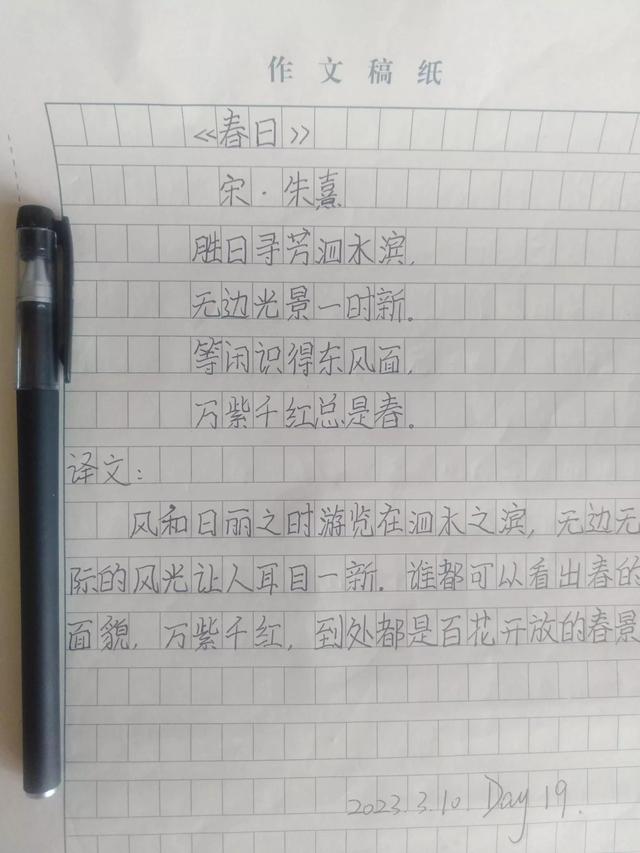 作文稿纸
《春日》
宋·朱熹
胜日寻芳泗水滨,
无边光景一时新。
等闲识得东风面,
万紫千红总是春。
译文:
风和日丽之时游览在泗水之滨,无边无
际的风光让人耳目一新.谁都可以看出春的
面貌,万紫千红,到处都是百花开放的春景
2023.3.10 Day 19.